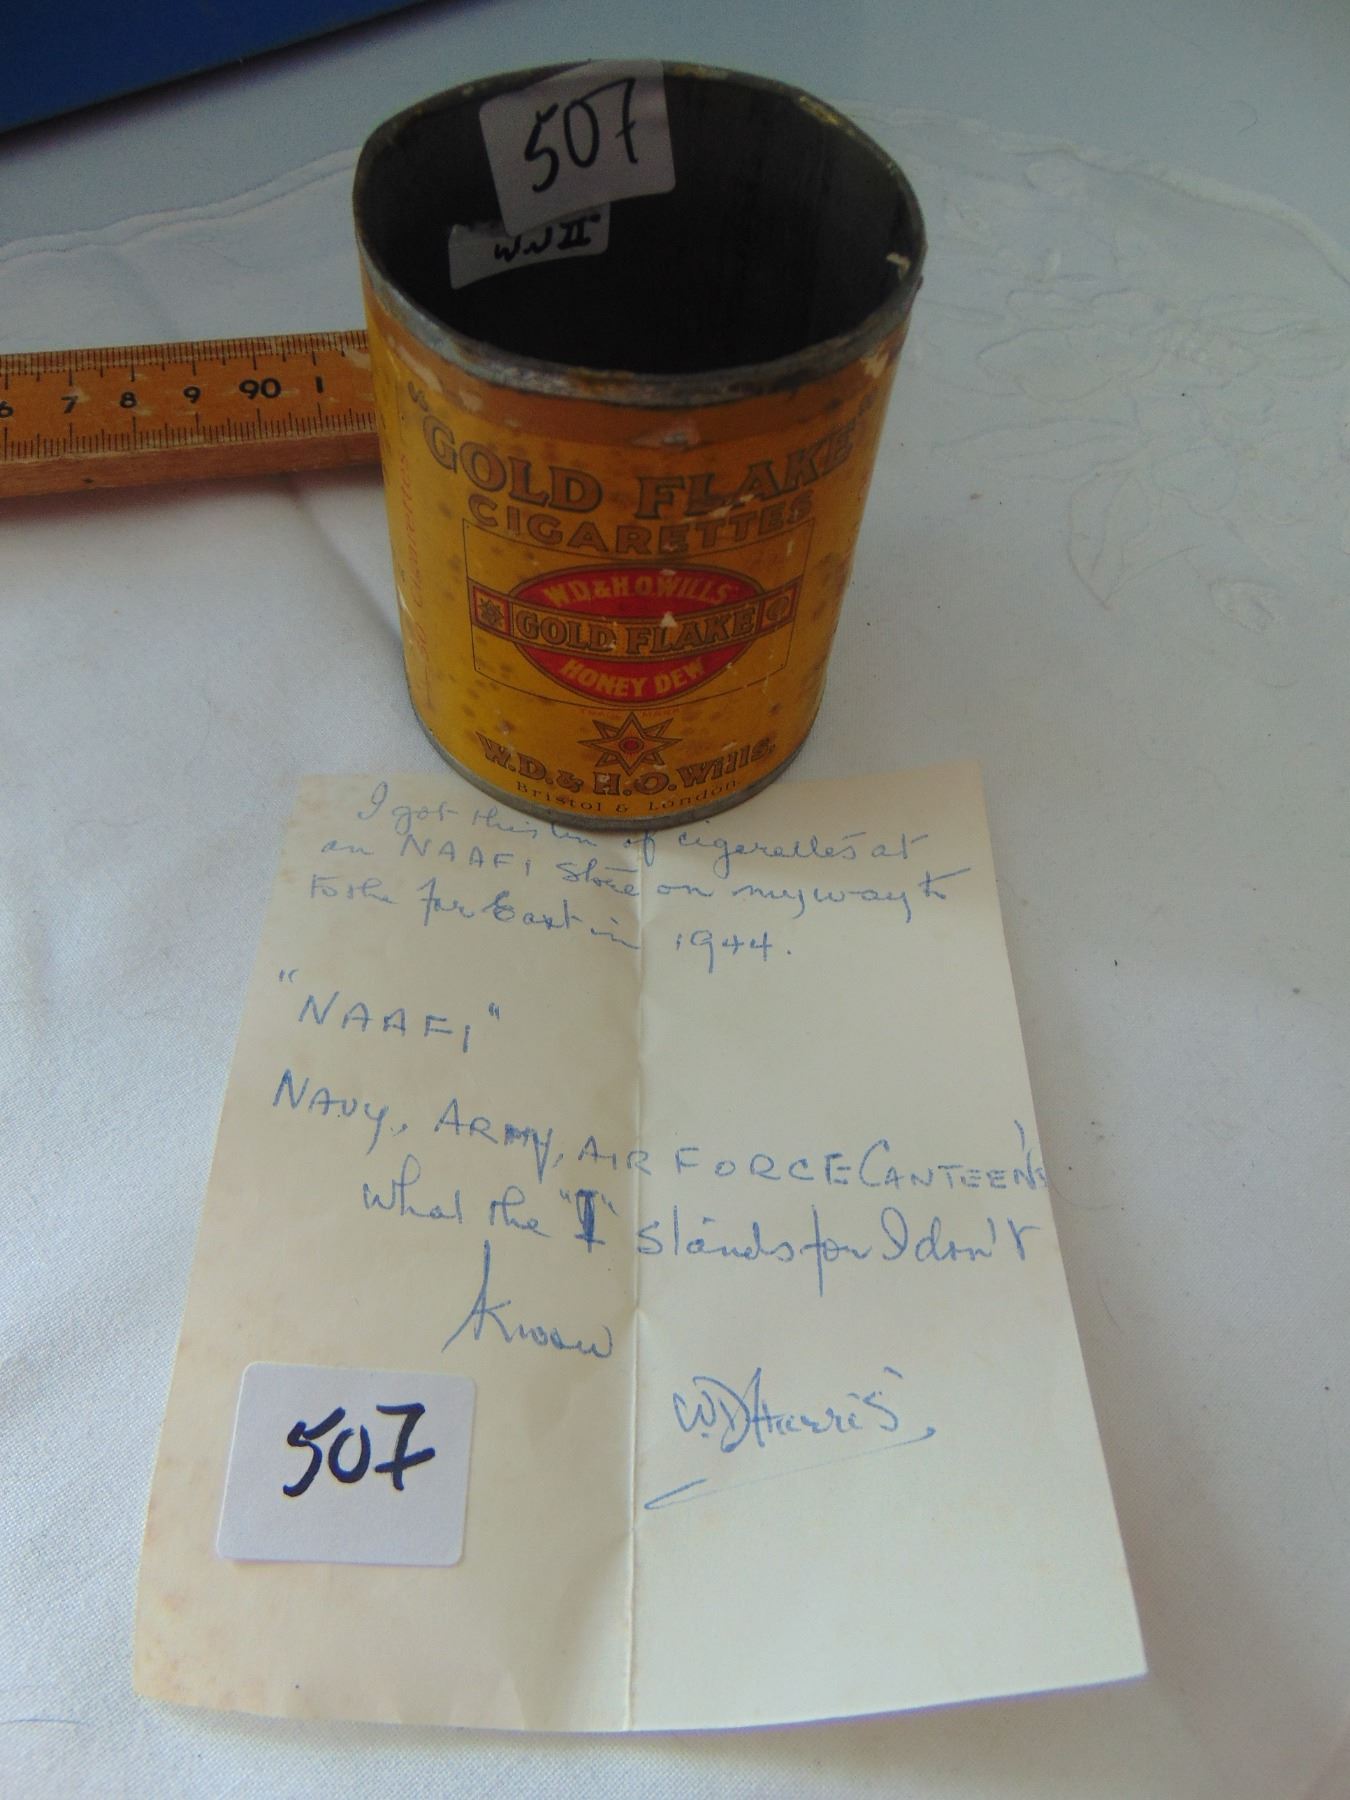 507
WW II
6 7 8 9 90 1
"GOLD FLAKE"
CIGARETTES
W.D.& H.O.WILLS
GOLD FLAKE
HONEY DEW
TRADE MARK
W.D.& H.O.Wills.
Bristol & London
50 Cigarettes
I got this tin of cigerettes at
an NAAFI store on my way to
to the far East in 1944.
"NAAFI"
NAVY, ARMY, AIR FORCE CANTEEN'S
What the "I" stands for I don't
know
W.D Harris
507